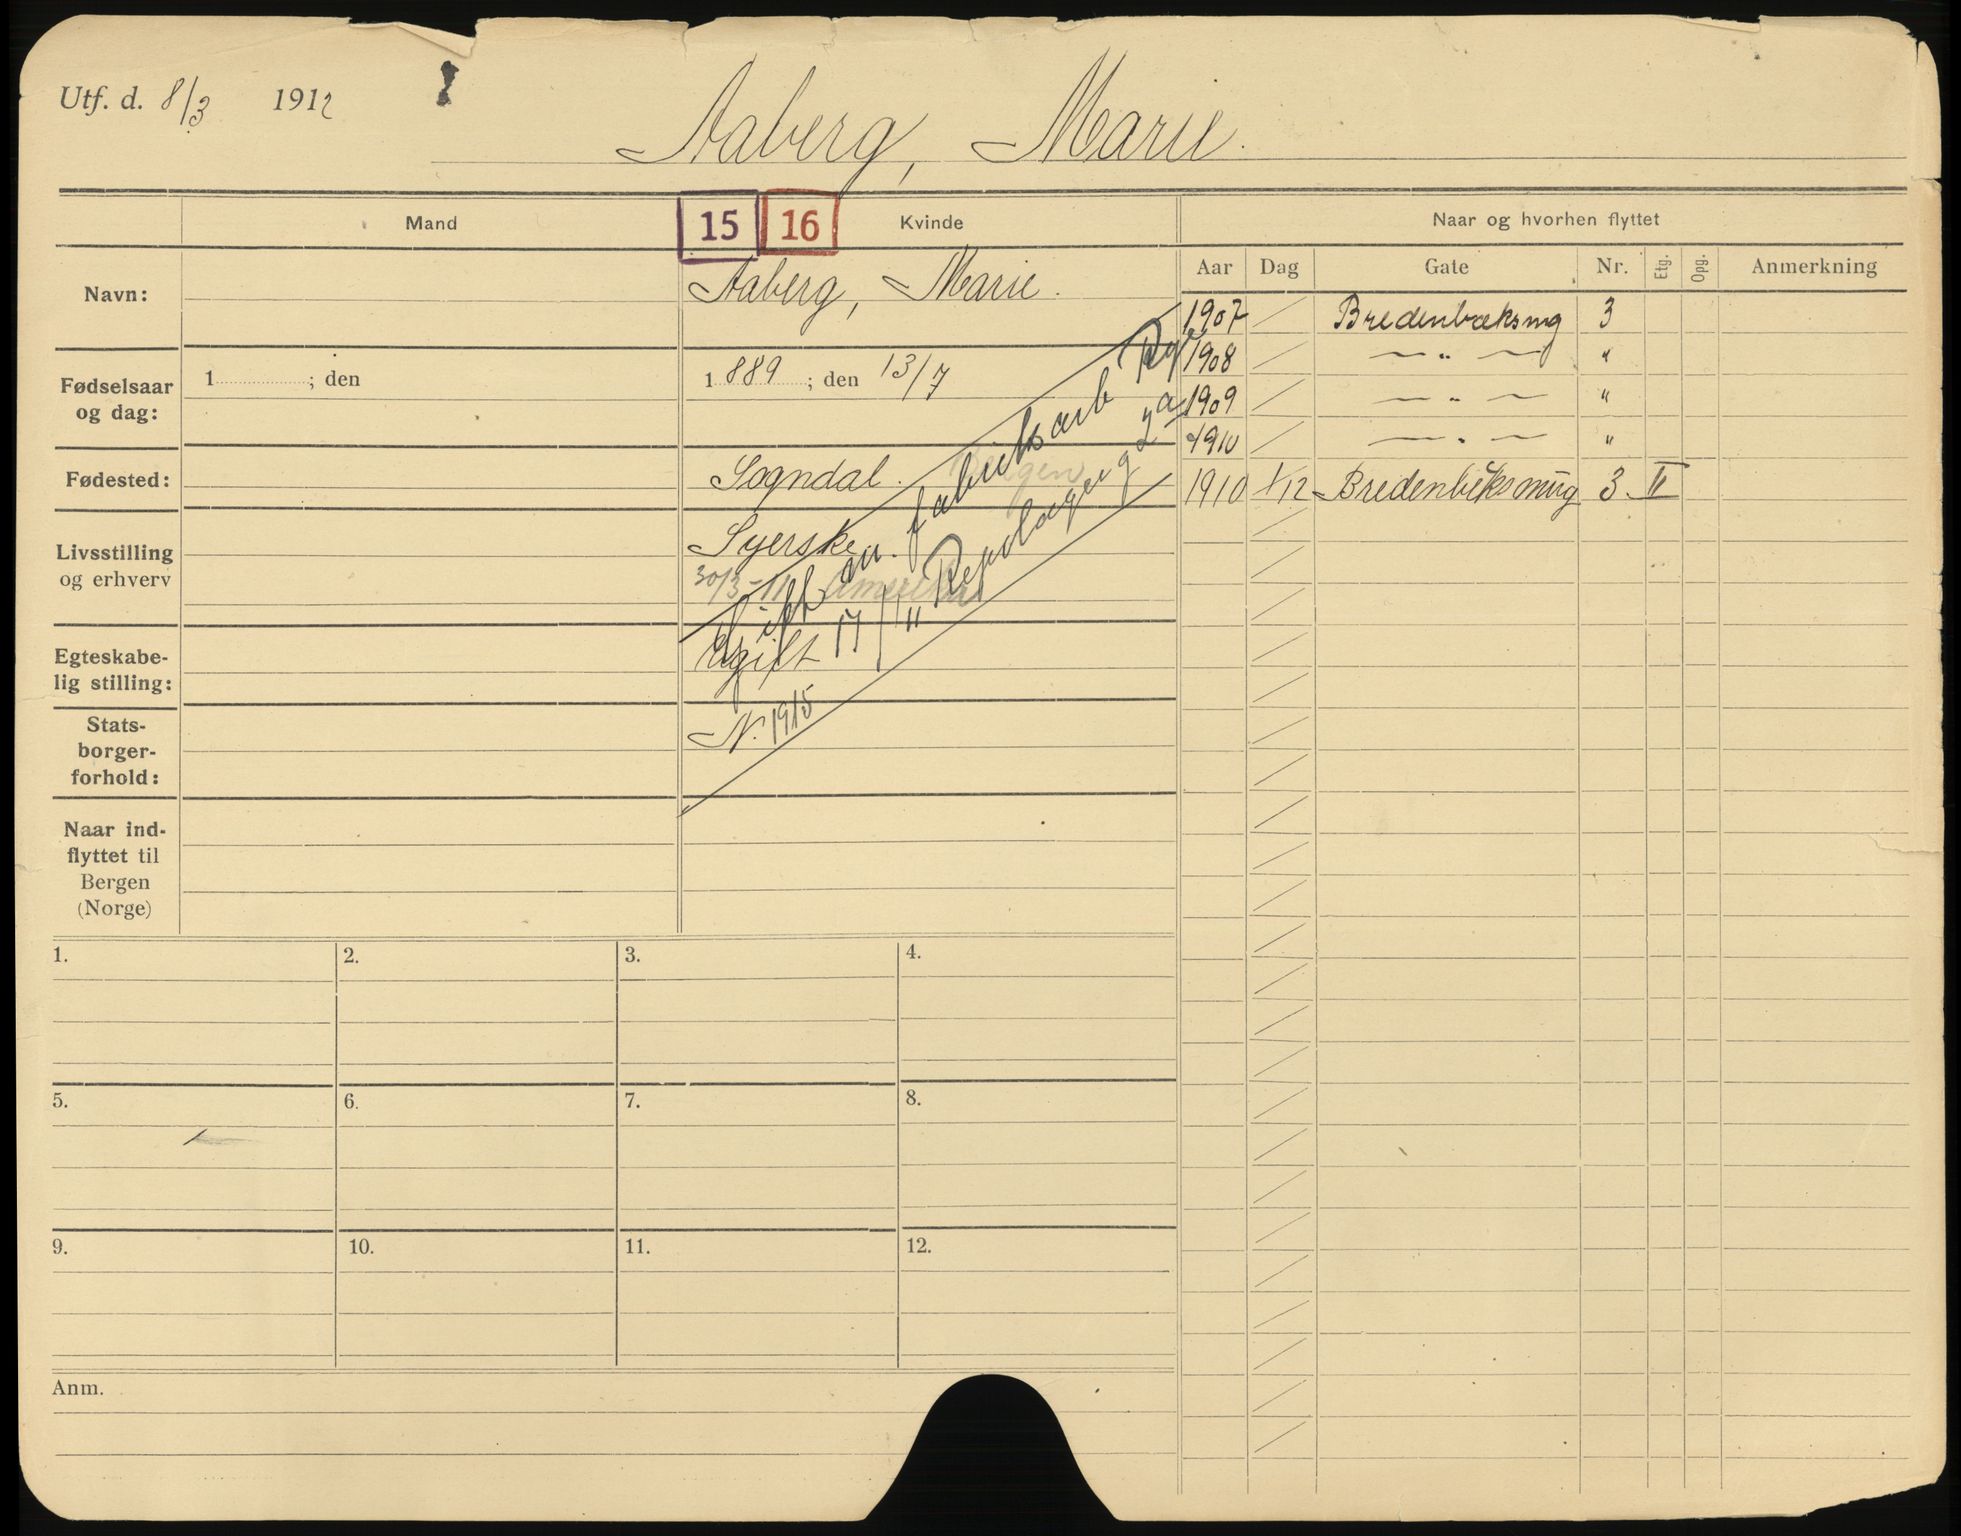 Utf. d. 8/3 1912
Aaberg, Marie.
Mand
15 16
Kvinde
Naar og hvorhen flyttet
Aar Dag Gate Nr. Etg. Opg. Anmerkning
Navn:
Aaberg, Marie.
Fødselsaar
og dag:
1 ; den
1889 ; den 13/7
Fødested:
Sogndal. Bergen
Livsstilling
og erhverv
Syerske
30/3-11 Amerika
Egteskabe-
lig stilling:
Ugift
Stats-
borger-
forhold:
N.
Gift m. fabriksarb
17/11 Repslagerg 2a
1915
Naar ind-
flyttet til
Bergen
(Norge)
1907 Bredenbæksmg 3
1908 — " — "
1909 — " — "
1910 — " — "
1910 1/12 Bredenbeksmug 3 II
1. 2. 3. 4.
5. 6. 7. 8.
9. 10. 11. 12.
Anm.